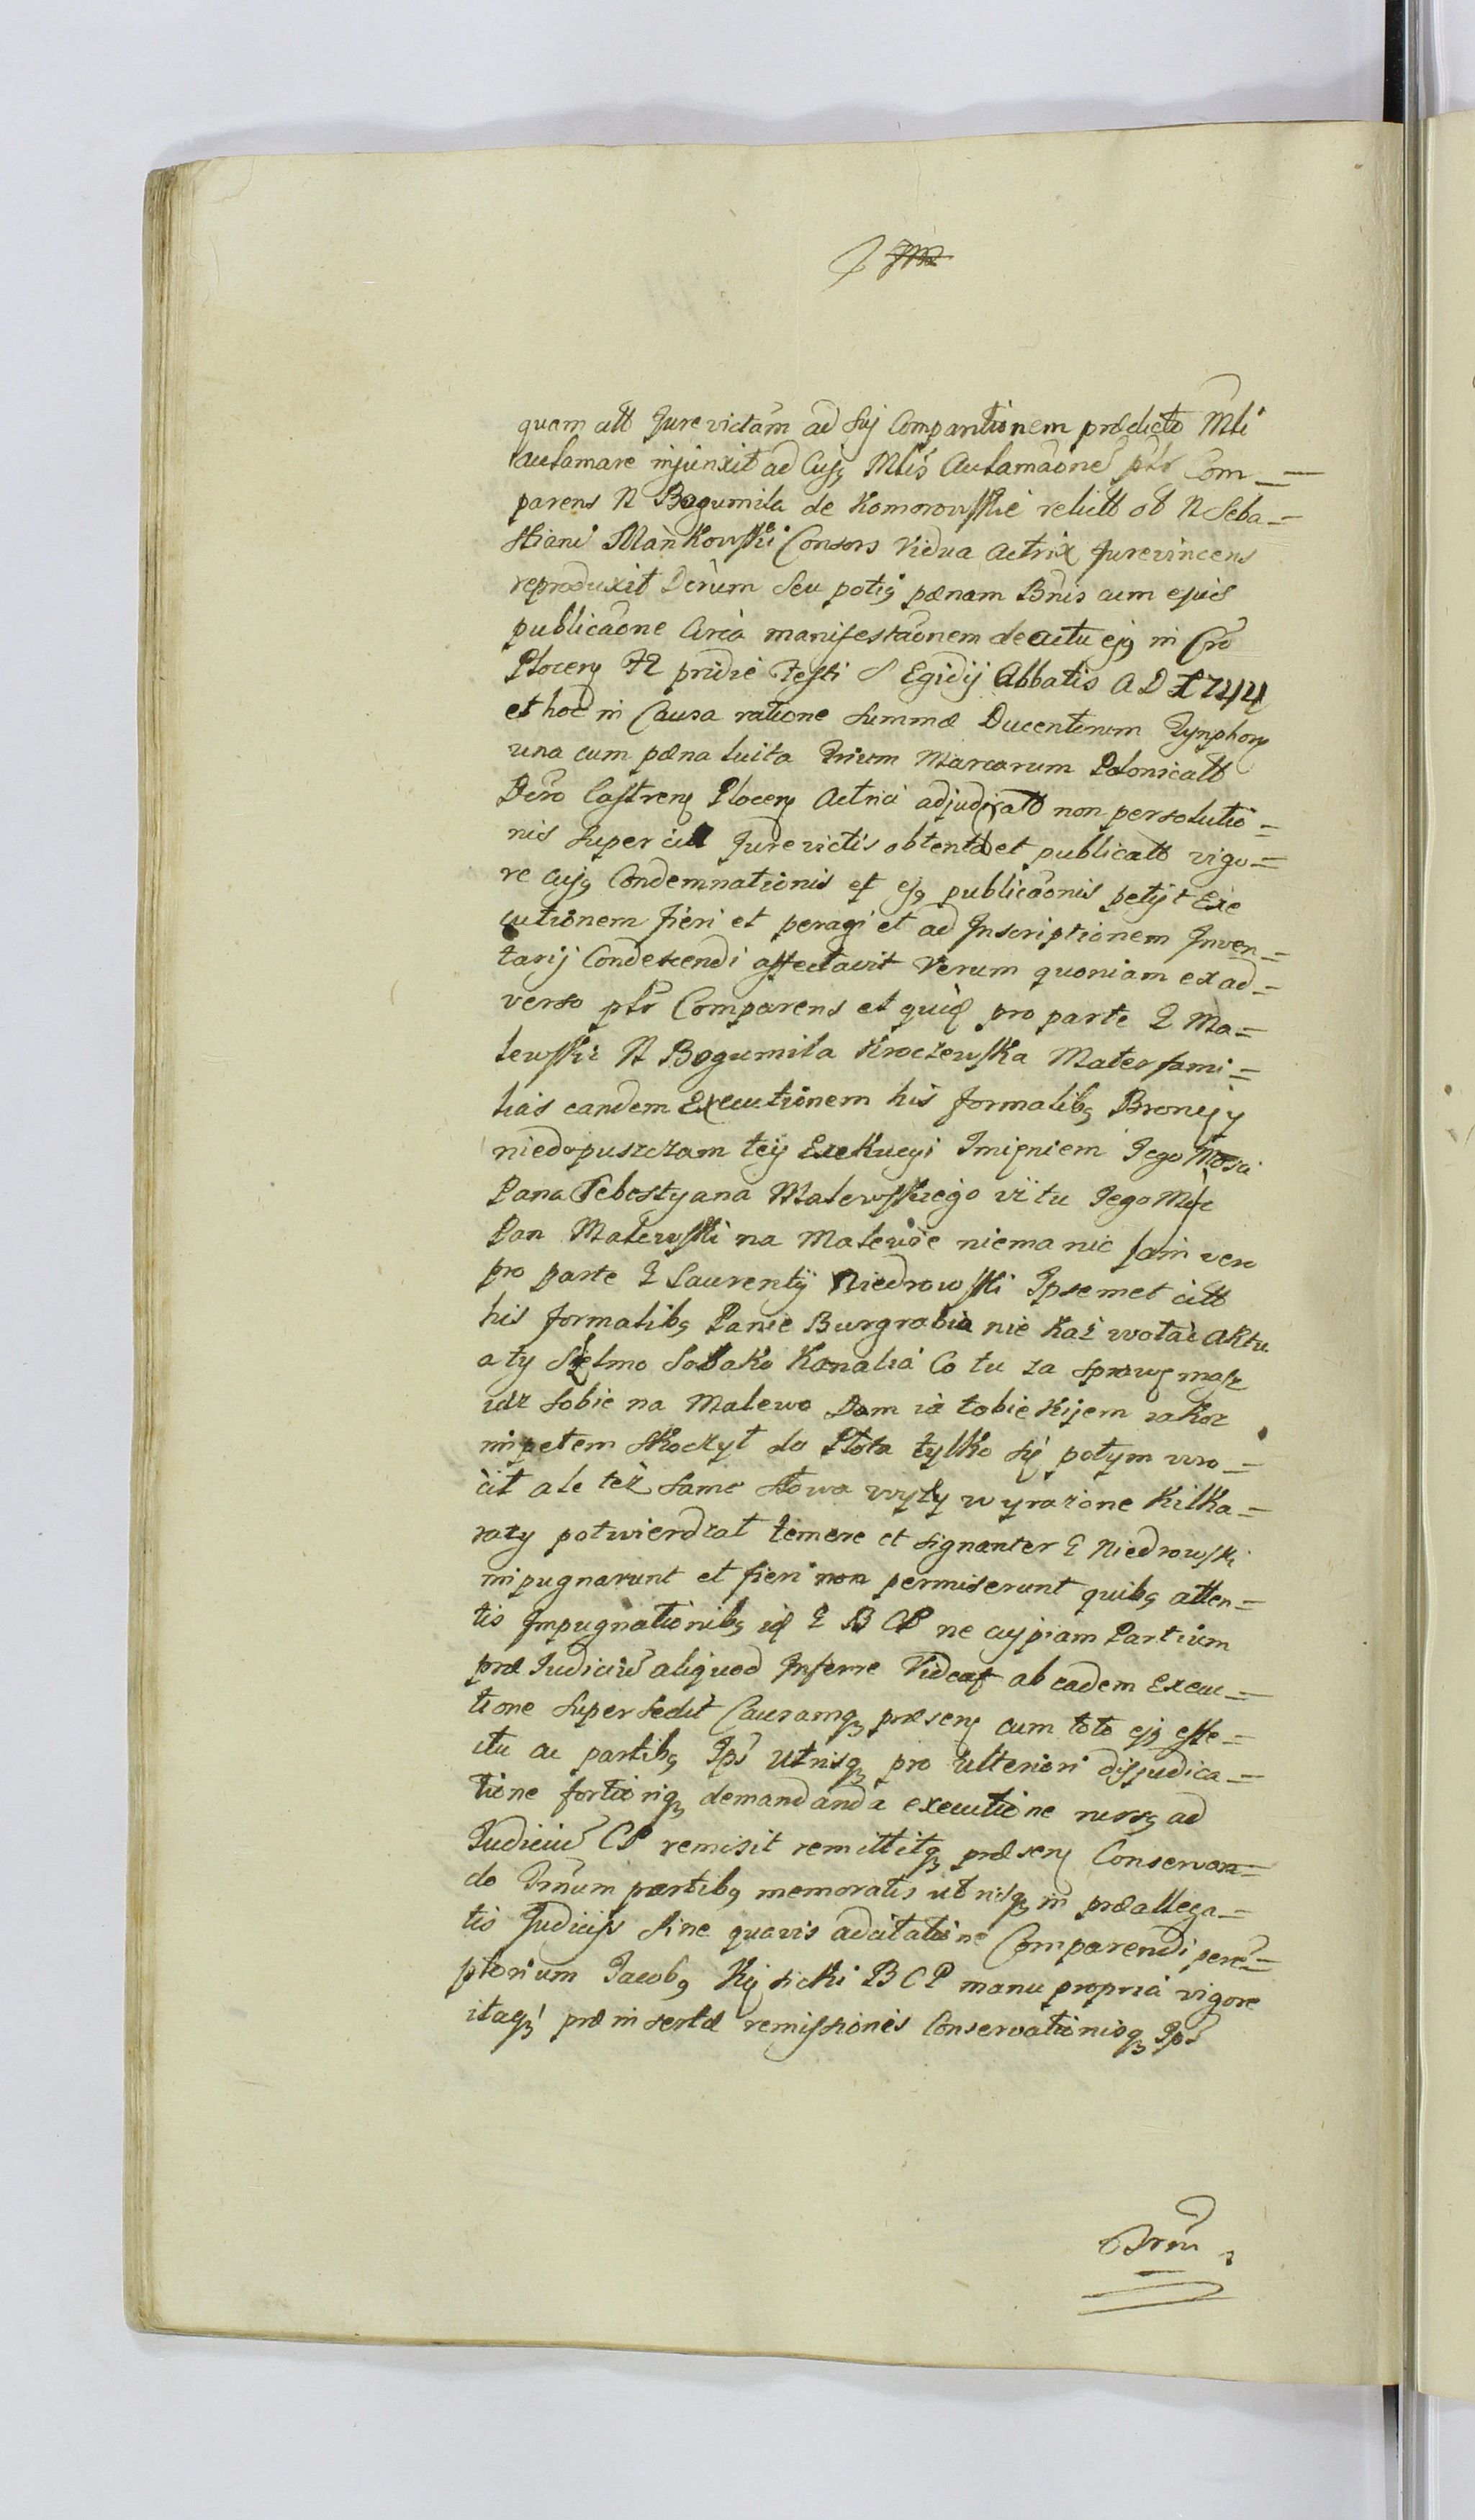 quam att Jurevictam ad sui Comparitionem prædicto Mli
Aclamare injunxit ad Cujq Mlis Aclamaone ptr Com=
parens N Bogumila de Komorowskie relictt ob N Seba=
stiani Mankowski Consors Vidua Actrix Jurevincens
reproduxit Decrum Seu potiq pænam Bnis cum ejus
publicaone Circa manifestaonem de actu ejq in Cro
Plocen f2 pridie Festi S Egidij Abbatis A D 1744
et hoc in Causa ratione Summæ Ducentorum Tynphon
una cum pæna luita Trium Marcarum Polonicatt
Dcro Castren Plocen Actrici adjudicatt non persolutio=
nis super citt Jurevictis obtenta et publicatt vigo=
re cujq Condemnationis et ejq publicaonis petijt Exe
cutionem fieri et peragi et ad Inscriptionem Inven=
tarij Condescendi affectavit Verum quoniam ex ad=
verso ptr Comparens et quid pro parte G Ma=
lewski N Bogumila Kroczewska Mater fami=
lias eandem Executionem his formalibq Bronię y
niedopuszczam tey Exekucyi Imięniem Jego Mosci
Pana Sebestyana Malewskiego vi tu Jego Mśc
Pan Malewski na Malewie niema nic sam vero
pro parte G Laurentij Niedrowski Ipsemet citt
his formalibq Panie Burgrabia nie każ wołać aktu
a ty Szelmo Sobako Kanalia Co tu za sprawę masz
idz sobie na Malewo Dam ia tobie kijem iakoz
impetem skoczył do Płota tylko się potym wro=
cił ale też same słowa wyży wyrażone kilka=
razy potwierdzał temere et signanter G Niedrowski
impugnarunt et fieri non permiserunt quibq atten=
tis Impugnationibq id G B C P ne cujpiam Partium
præ Judiciu aliquod Inferre Videat ab eadem Execu=
tione supersedit Causamq præsen cum toto ejq effe=
ctu ac partibq Ips Utrisq pro Ulteriori disjudica=
tione fortioriq demandanda executione rursq ad
Judiciu C P remisit remittitq præsen Conservan=
do Trnum partibq memoratis utrisq in præallega=
tis Judicijs sine quavis adcitatione Comparendi pere=
ptorium Jacobq Kijsicki B C P manu propria vigore
itaq præ insertæ remissionis Conservationisq Ips
Trnu